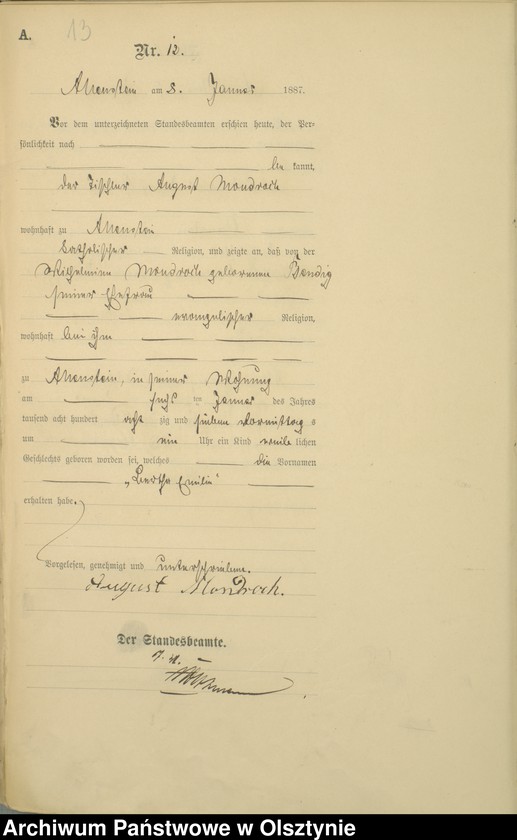 A. 13
Nr. 12.
Allenstein am 8. Januar 1887.
Vor dem unterzeichneten Standesbeamten erschien heute, der Per-
sönlichkeit nach
be kannt,
der Tischler August Mondroch
wohnhaft zu Allenstein
katholischer Religion, und zeigte an, daß von der
Wilhelmine Mondroch geborenen Bendig
seiner Ehefrau
evangelischer Religion,
wohnhaft bei ihm
zu Allenstein, in seiner Wohnung
am sechs ten Januar des Jahres
tausend acht hundert acht zig und sieben Vormittag s
um ein Uhr ein Kind weib lichen
Geschlechts geboren worden sei, welches die Vornamen
„Bertha Emilie"
erhalten habe.
Vorgelesen, genehmigt und unterschrieben.
August Mondroch.
Der Standesbeamte.
Archiwum Państwowe w Olsztynie